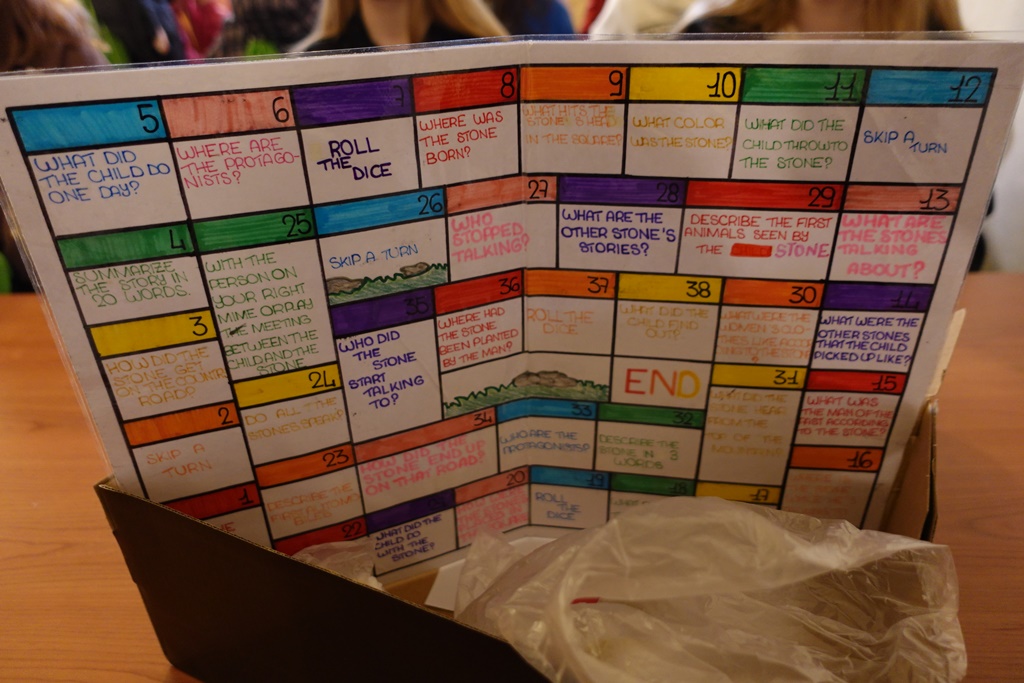 5
WHAT DID
THE CHILD DO
ONE DAY?
6
WHERE ARE
THE PROTAGO-
NISTS?
7
ROLL
THE
DICE
8
WHERE WAS
THE STONE
BORN?
9
WHAT HITS THE
STONE'S HEAD
IN THE SQUARE?
10
WHAT COLOR
WAS THE STONE?
11
WHAT DID THE
CHILD THROW TO
THE STONE?
12
SKIP A
TURN
4
SUMMARIZE
THE STORY IN
20 WORDS.
25
WITH THE
PERSON ON
YOUR RIGHT
MIME OR PLAY
THE MEETING
BETWEEN THE
CHILD AND THE
STONE
26
SKIP A TURN
27
WHO
STOPPED
TALKING?
28
WHAT ARE THE
OTHER STONE'S
STORIES?
29
DESCRIBE THE FIRST
ANIMALS SEEN BY
THE STONE.
13
WHAT ARE
THE STONES
TALKING
ABOUT?
3
HOW DID THE
STONE GET
ON THE COUNTRY
ROAD?
24
DO ALL THE
STONES SPEAK?
35
WHO DID
THE
STONE
START
TALKING
TO?
36
WHERE HAD
THE STONE
BEEN PLANTED
BY THE MAN?
37
ROLL THE
DICE
38
WHAT DID THE
CHILD FIND
OUT?
END
30
WHAT WERE THE
WOMEN'S CLO-
THES LIKE ACCOR
DING TO THE STONE
14
WHAT WERE THE
OTHER STONES
THAT THE CHILD
PICKED UP LIKE?
2
SKIP A
TURN
23
DESCRIBE THE
34
HOW DID THE
STONE END UP
ON THAT ROAD?
33
WHO ARE THE
PROTAGONISTS?
32
DESCRIBE THE
STONE IN 3
WORDS
31
WHAT DID THE
STONE HEAR
FROM THE
TOP OF THE
MOUNTAIN?
15
WHAT WAS
THE MAN OF THE
FIRST ACCORDING
TO THE STONE?
1
22
WHAT DID THE
CHILD DO
WITH THE
STONE?
20
19
ROLL
THE
DICE
18
17
16